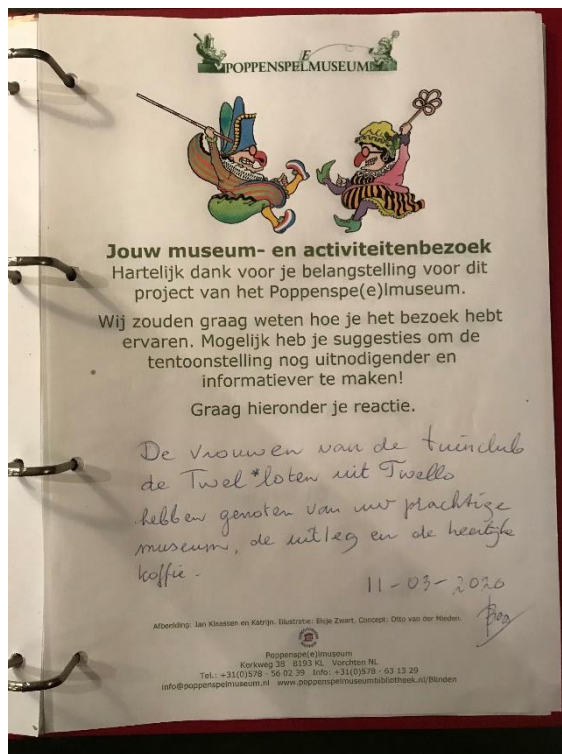 POPPENSPELMUSEUM
E
Jouw museum- en activiteitenbezoek
Hartelijk dank voor je belangstelling voor dit
project van het Poppenspe(e)lmuseum.
Wij zouden graag weten hoe je het bezoek hebt
ervaren. Mogelijk heb je suggesties om de
tentoonstelling nog uitnodigender en
informatiever te maken!
Graag hieronder je reactie.
De vrouwen van de tuinclub
de Twel*loten uit Twello
hebben genoten van uw prachtige
museum, de uitleg en de heerlijke
koffie.
11-03-2020
Afbeelding: Jan Klaassen en Katrijn. Illustratie: Elsje Zwart. Concept: Otto van der Mieden.
Poppenspe(e)lmuseum
Kerkweg 38 8193 KL Vorchten NL
Tel.: +31(0)578 - 56 02 39 Info: +31(0)578 - 63 13 29
info@poppenspelmuseum.nl www.poppenspelmuseumbibliotheek.nl/Blinden